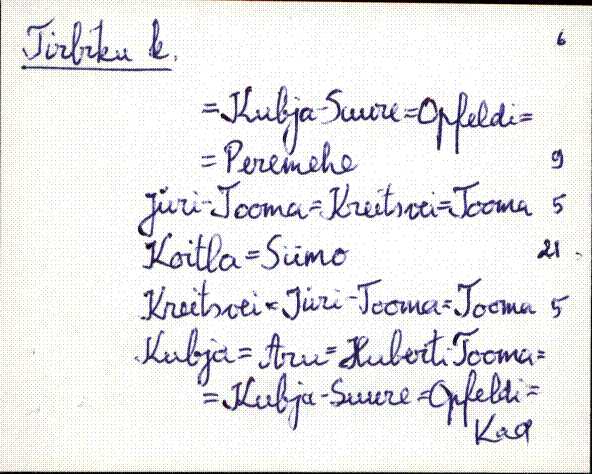 Tirbiku k. 6
=Kubja-Suure=Opfeldi=
=Peremehe 9
Jüri-Tooma=Kreitsvei=Tooma 5
Koitla=Siimo 21
Kreitsvei=Jüri-Tooma=Tooma 5
Kubja=Aru=Huberti Tooma=
=Kubja-Suure=Opfeldi=